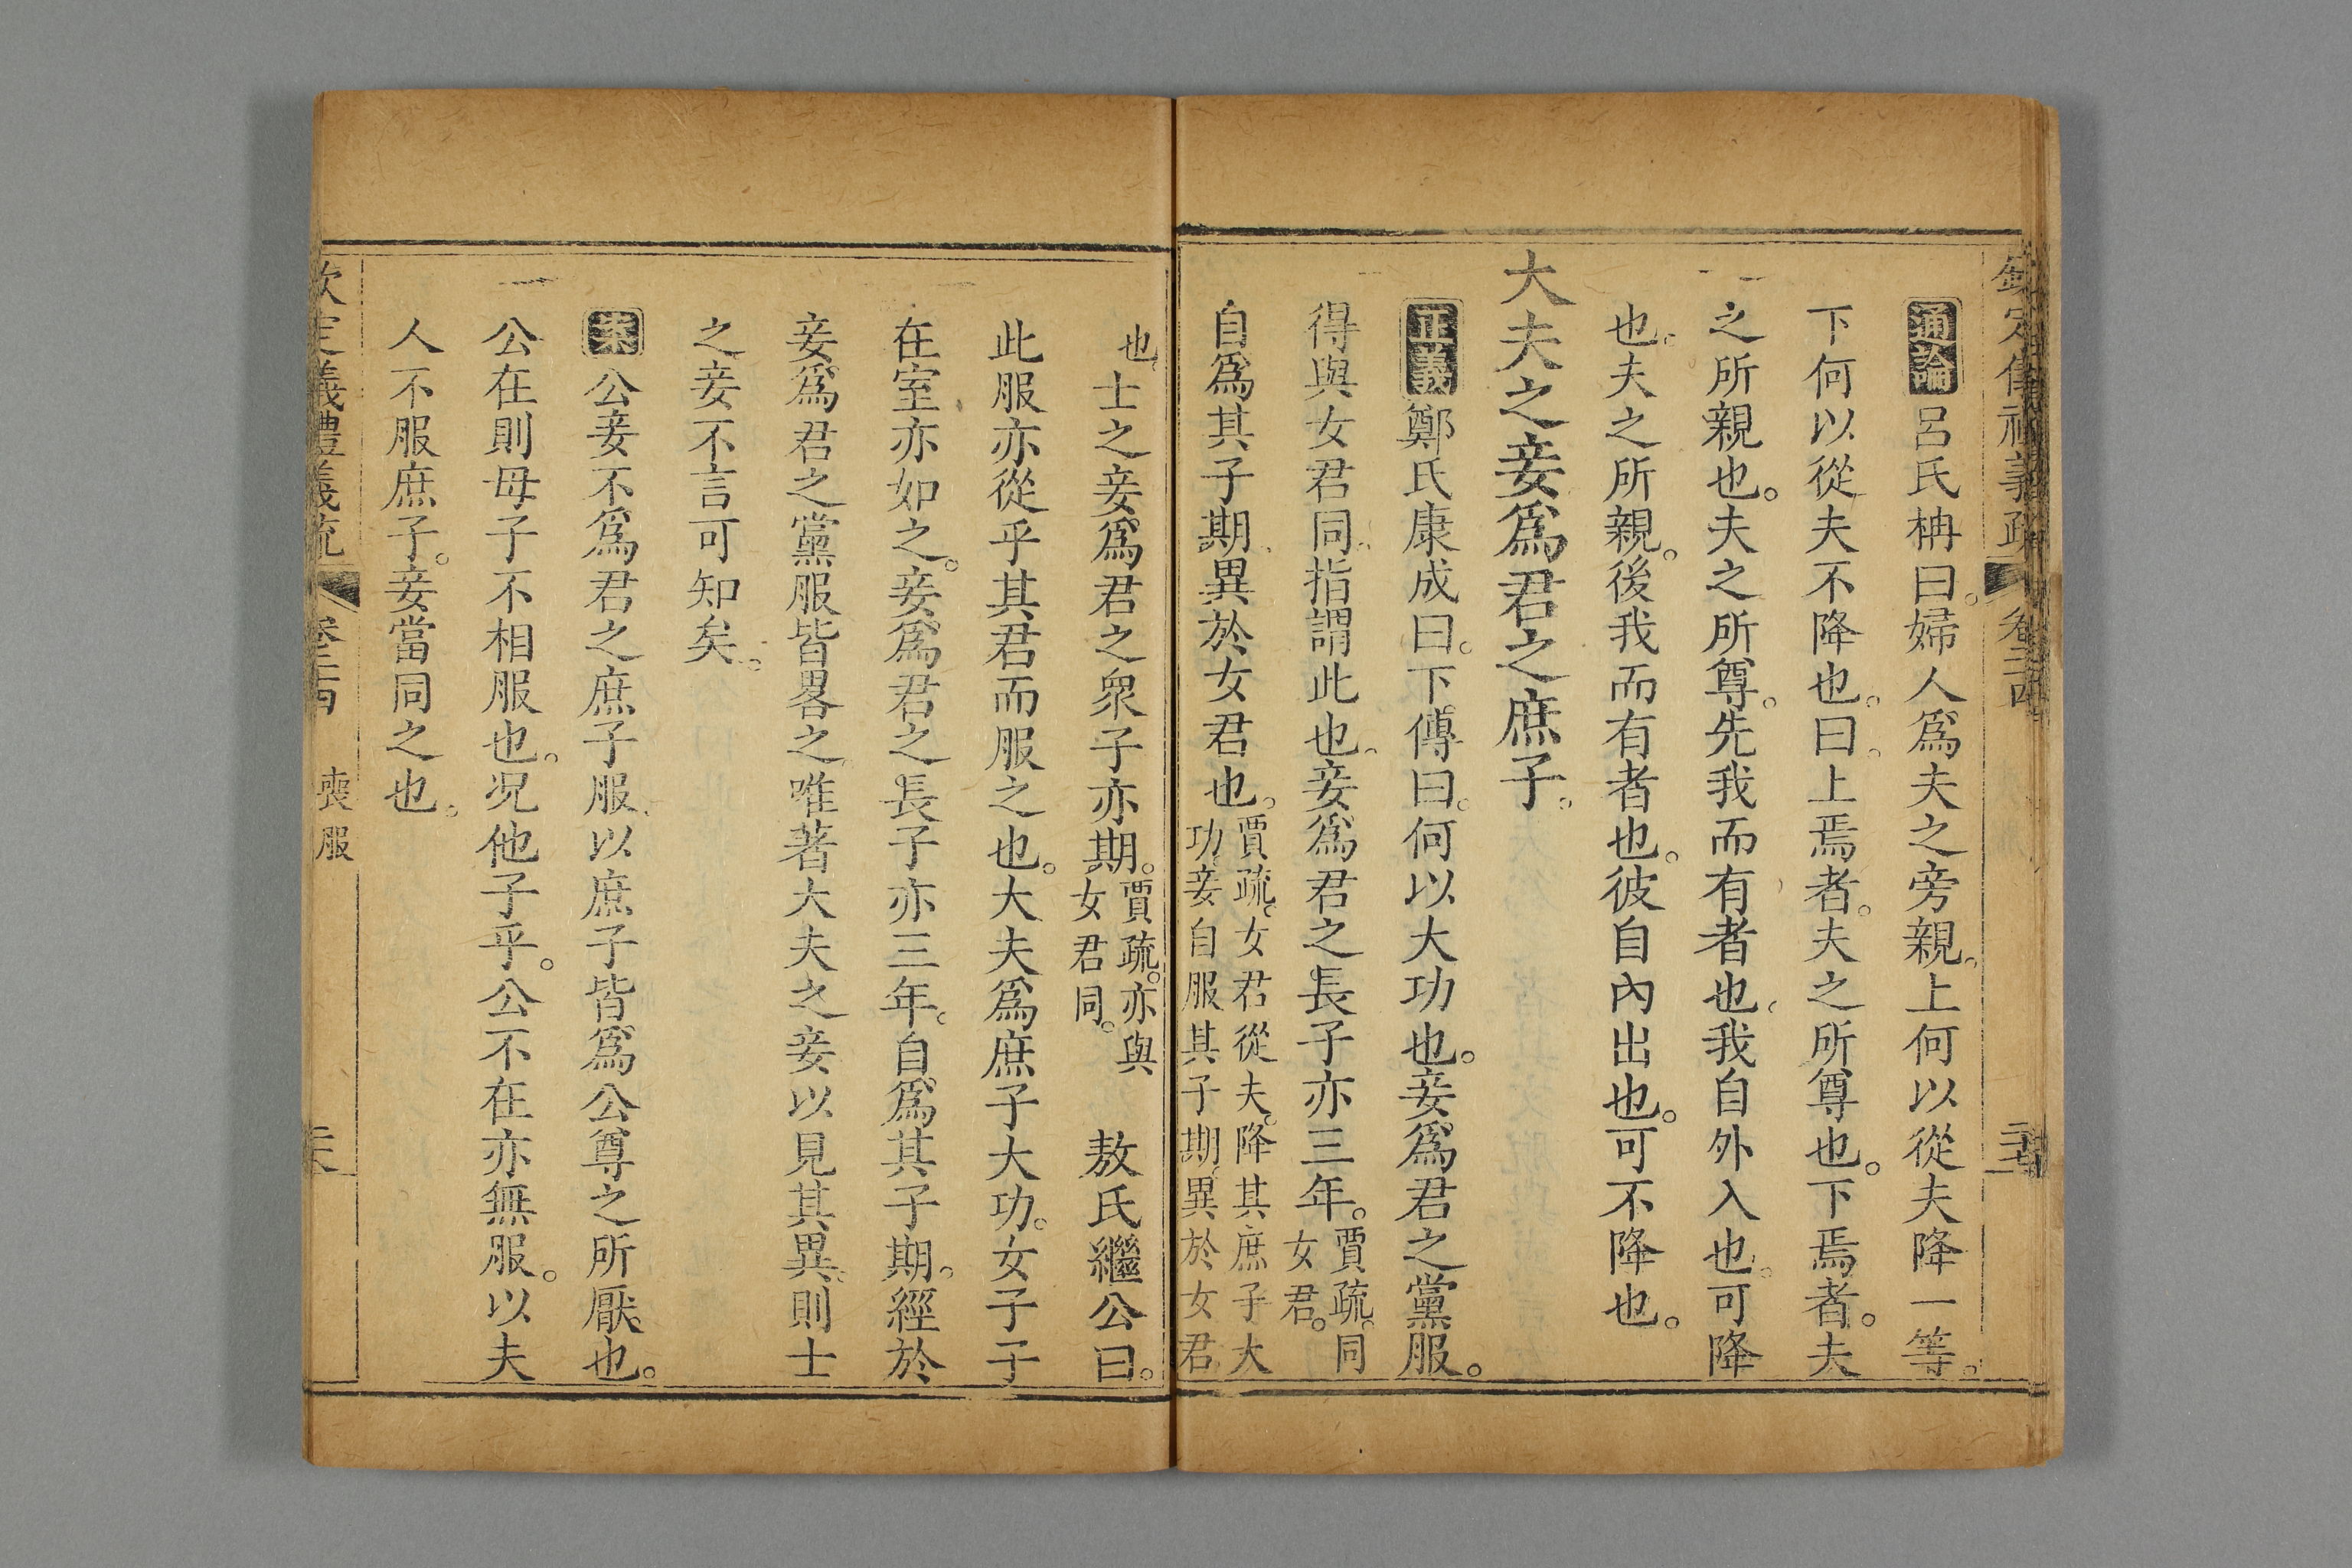 欽定儀禮義疏 卷二四
通論 呂氏柟曰。婦人爲夫之旁親。上何以從夫降一等。
下何以從夫不降也。曰。上焉者。夫之所尊也。下焉者。夫
之所親也。夫之所尊。先我而有者也。我自外入也。可降
也。夫之所親。後我而有者也。彼自內出也。可不降也。
大夫之妾爲君之庶子。
正義 鄭氏康成曰。下傳曰。何以大功也。妾爲君之黨服。
得與女君同。指謂此也。妾爲君之長子亦三年。賈疏。同女君。
自爲其子期。異於女君也。賈疏。女君從夫。降其庶子大功。妾自服其子期。異於女君
也。士之妾爲君之衆子亦期。賈疏。亦與女君同。 敖氏繼公曰。
此服亦從乎其君而服之也。大夫爲庶子大功。女子子
在室亦如之。妾爲君之長子亦三年。自爲其子期。經於
妾爲君之黨服皆畧之。唯著大夫之妾以見其異。則士
之妾不言可知矣。
案 公妾不爲君之庶子服。以庶子皆爲公尊之所厭也。
公在則母子不相服也。況他子乎。公不在亦無服。以夫
人不服庶子。妾當同之也。
欽定義禮義疏 卷二四 喪服